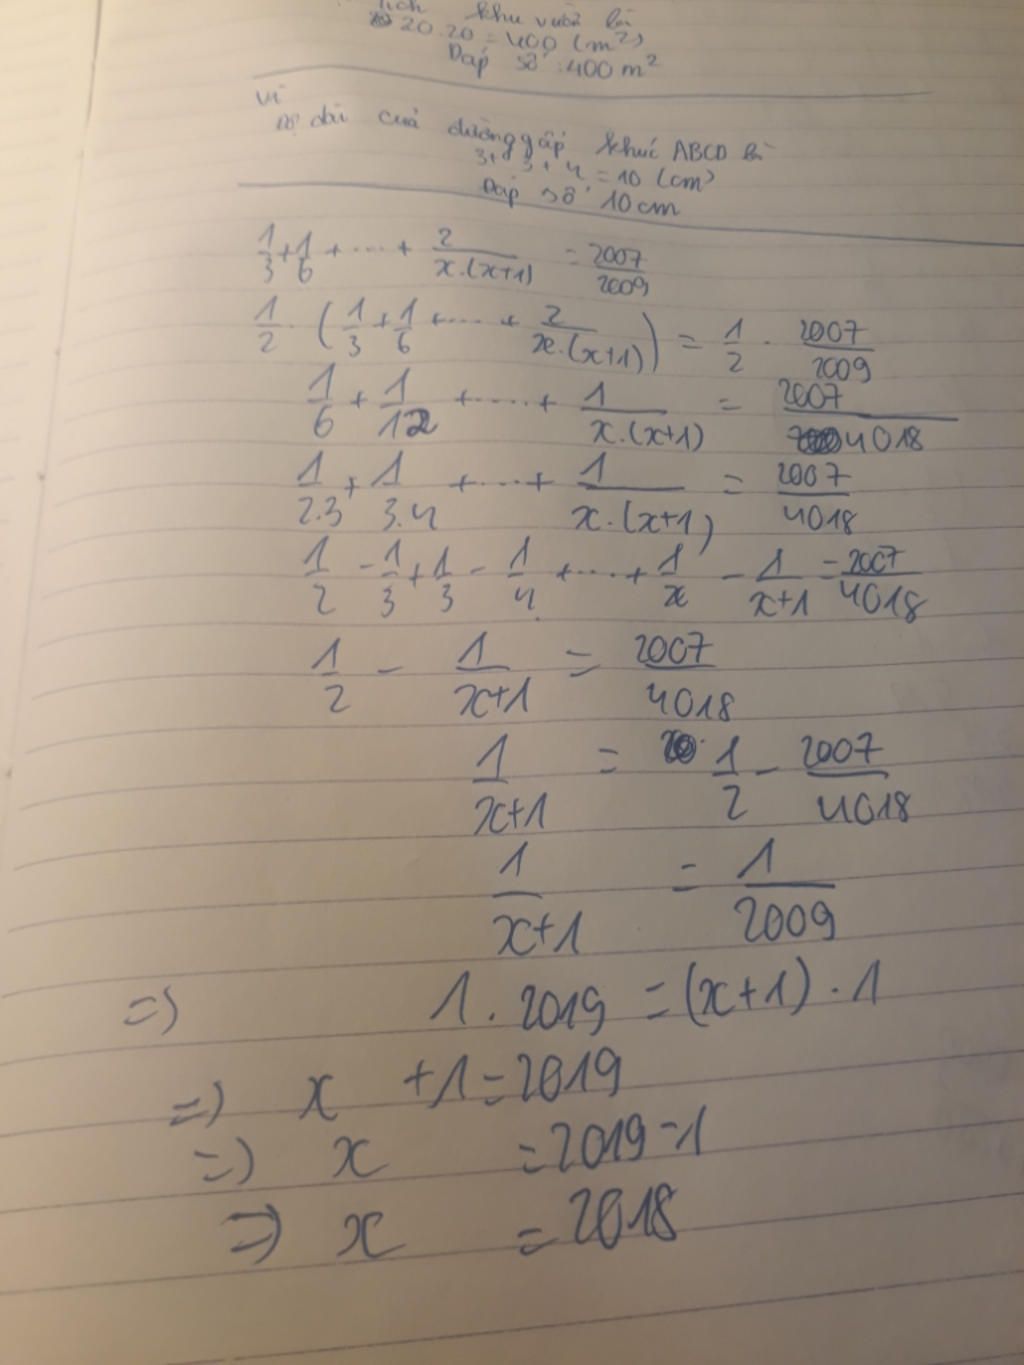 tích khu vườn là
20.20 = 400 (m²)
Đáp số : 400 m²
Độ dài của đường gấp khúc ABCD là
3 + 3 + 4 = 10 (cm)
Đáp số 10cm
1/3 + 1/6 + .... + 2/x.(x+1) = 2007/2009
1/2 . (1/3 + 1/6 + .... + 2/x.(x+1)) = 1/2 . 2007/2009
1/6 + 1/12 + ..... + 1/x.(x+1) = 2007/4018
1/2.3 + 1/3.4 + .... + 1/x.(x+1) = 2007/4018
1/2 - 1/3 + 1/3 - 1/4 + .... + 1/x - 1/x+1 = 2007/4018
1/2 - 1/x+1 = 2007/4018
1/x+1 = 1/2 - 2007/4018
1/x+1 = 1/2009
=) 1 . 2019 = (x+1) . 1
=) x + 1 = 2019
=) x = 2019 - 1
=) x = 2018